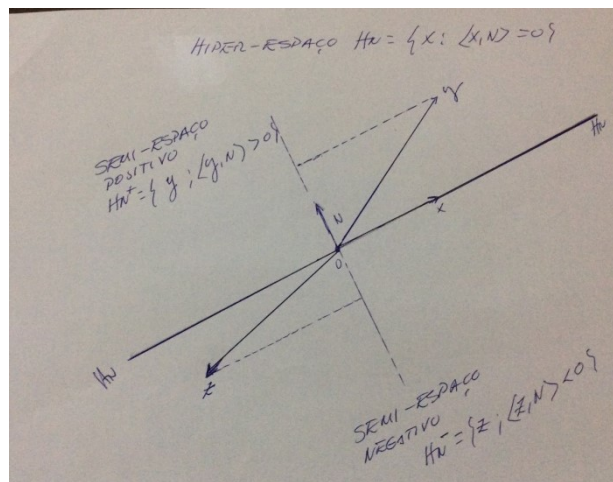 HIPER-ESPAÇO HN = {X: ⟨X,N⟩ = 0}
SEMI-ESPAÇO
POSITIVO
HN⁺ = {y ; ⟨y,N⟩ > 0}
y
HN
N
X
0
HN
Z
SEMI-ESPAÇO
NEGATIVO
HN⁻ = {Z ; ⟨Z,N⟩ < 0}